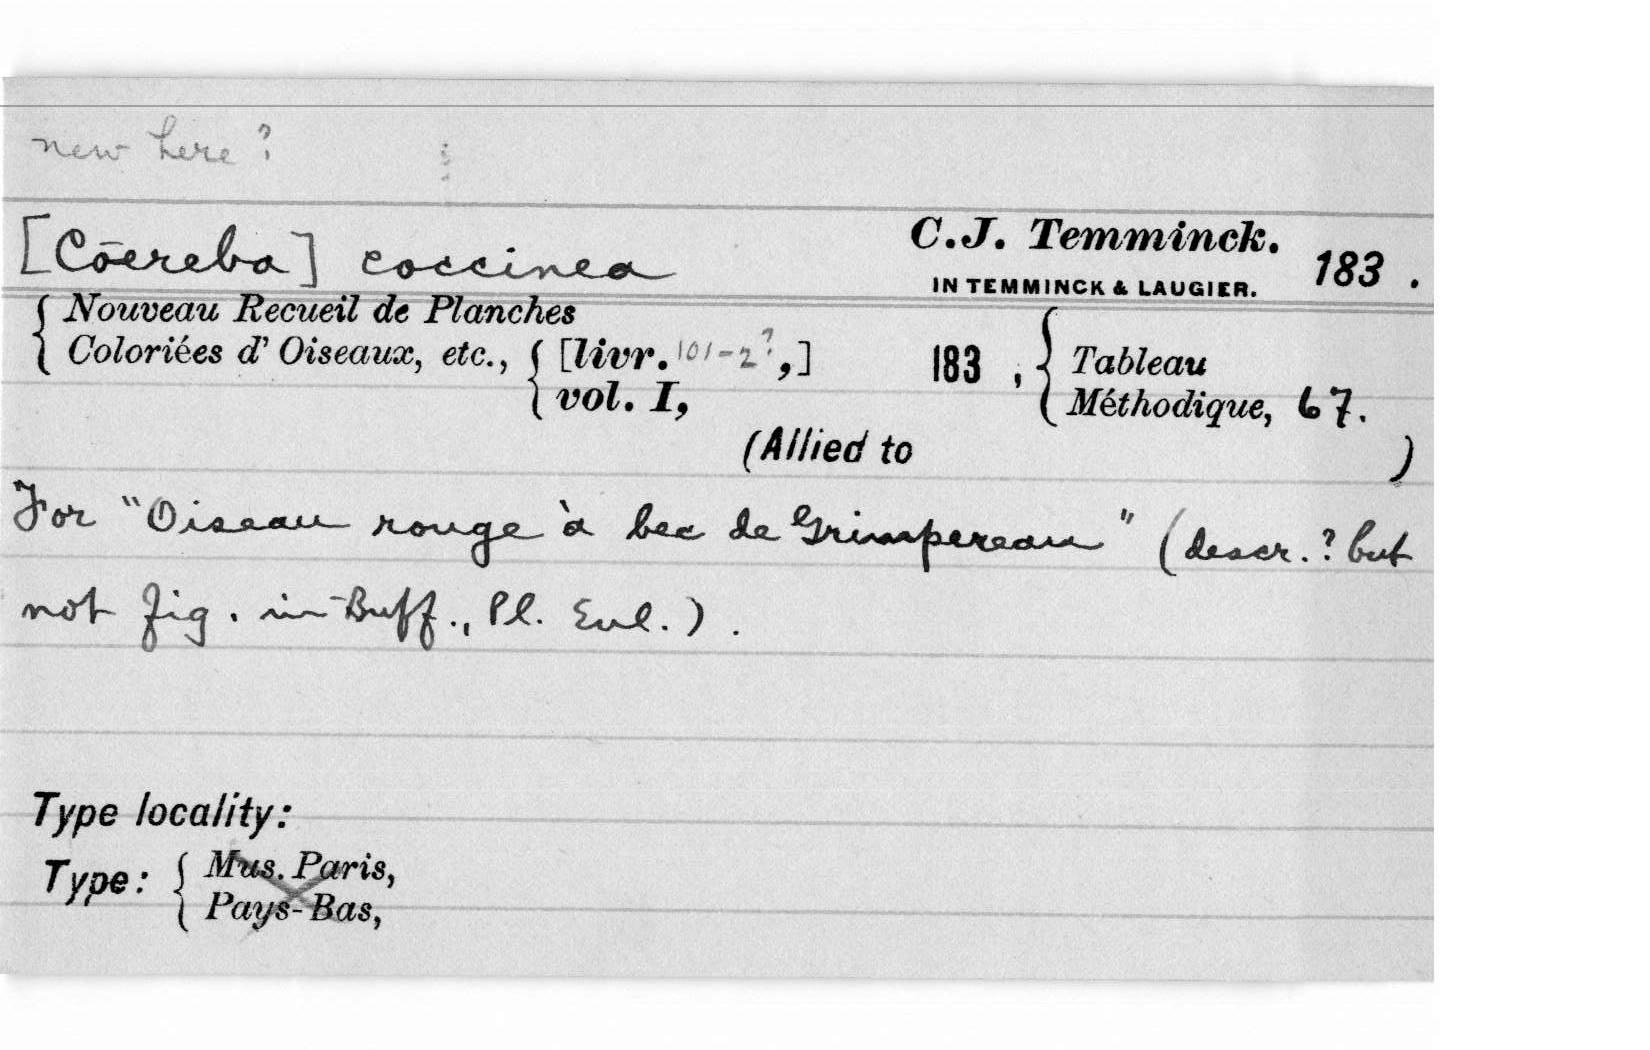 new here?
[Cōereba] coccinea C.J. Temminck. 183 .
IN TEMMINCK & LAUGIER.
Nouveau Recueil de Planches
Coloriées d' Oiseaux, etc., [livr. 101-2?,] 183 , Tableau
vol. I, Méthodique, 67.
(Allied to )
For "Oiseau rouge à bec de Grimpereau" (descr.? but
not fig. in Buff., Pl. Enl.).
Type locality:
Type: Mus. Paris,
Pays-Bas,